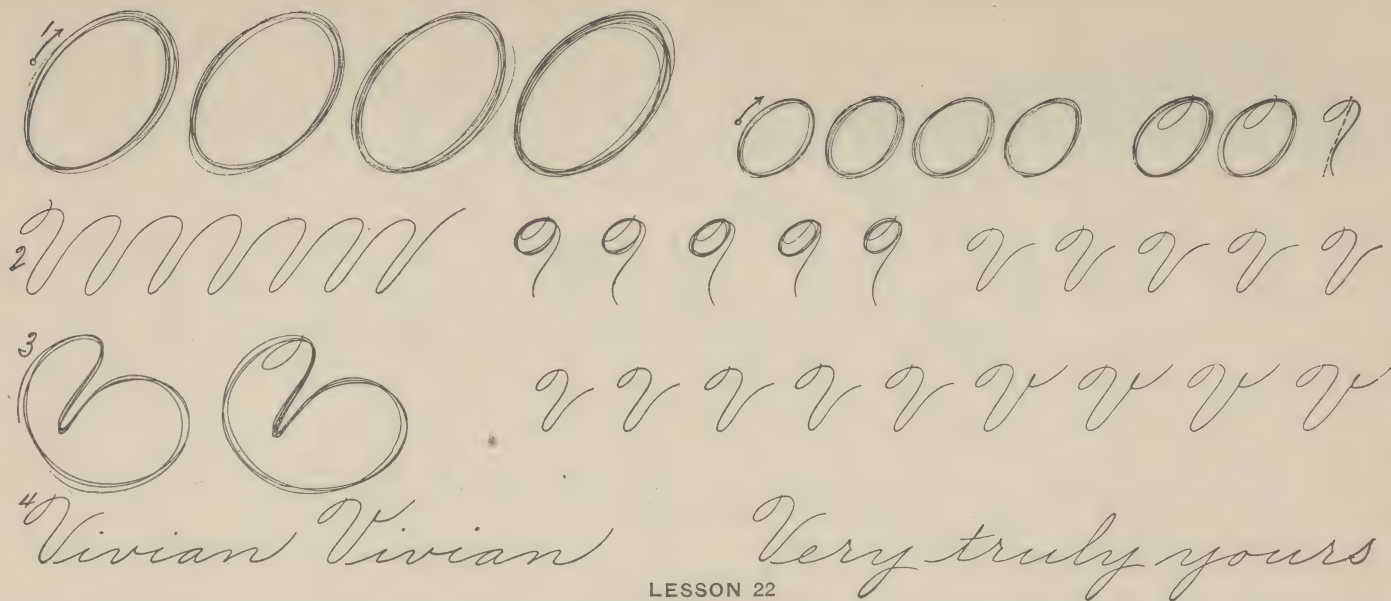 1
2 V V V V V
3 V V V V V V V V V
4 Vivian Vivian Very truly yours
LESSON 22